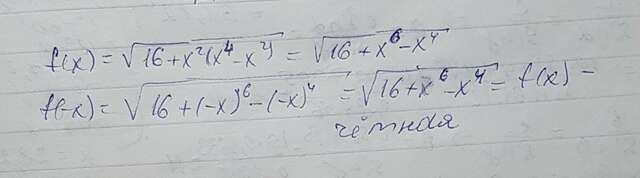 f(x) = √(16+x²(x⁴-x²)) = √(16+x⁶-x⁴)
f(-x) = √(16+(-x)⁶-(-x)⁴) = √(16+x⁶-x⁴) = f(x) –
чётная